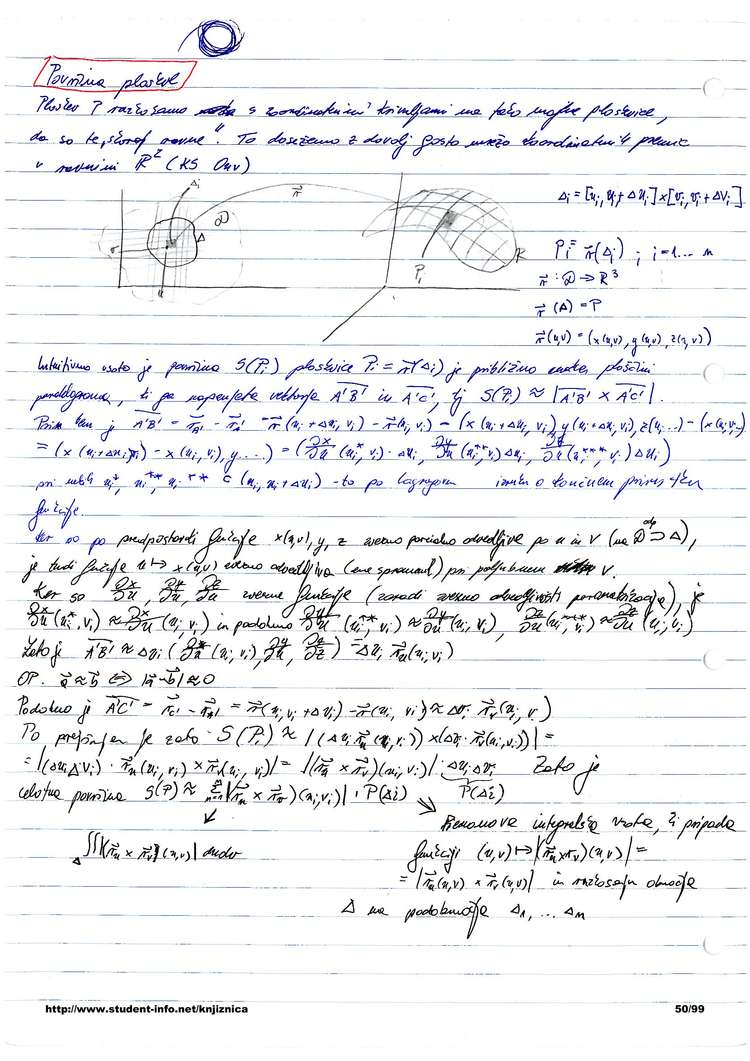 Površina ploskve
Ploskev P razkosamo s koordinatnimi krivuljami na tako majhne ploskvice,
da so te „skoraj ravne“. To dosežemo z dovolj gosto mrežo koordinatnih premic
v ravnini R² (KS Ouv)
Δi
r⃗
Δi = [ui, ui + Δui] × [vi, vi + Δvi]
D
Δ
v
u
Pi
Pi = r⃗(Δi) ; i = 1... n
r⃗ : D → R³
r⃗ (Δ) = P
r⃗(u,v) = (x(u,v), y(u,v), z(u,v))
Intuitivno je površina S(Pi) ploskvice Pi = r⃗(Δi) je približno enaka ploščini
paralelograma, ki ga napenjata vektorja A'B' in A'C', tj S(Pi) ≈ |A'B' × A'C'|.
Pri tem je A'B' = r⃗B' - r⃗A' = r⃗(ui + Δui, vi) - r⃗(ui, vi) = (x(ui+Δui, vi) y(ui+Δui, vi), z(ui...) - (x(ui,vi...
= (x(ui+Δui, vi) - x(ui, vi), y...) = (∂x/∂u (ui*, vi) · Δui, ∂y/∂u (ui**, vi) Δui, ∂z/∂u (ui***, vi) Δui)
pri nekih ui*, ui**, ui*** ∈ (ui, ui+Δui) - to po Lagrangevem izreku o končnem prirastku
funkcije.
Ker so po predpostavki funkcije x(u,v), y, z zvezno parcialno odvedljive po u in v (na D ⊃ Δ),
je tudi funkcija u ↦ x(u,v) zvezno odvedljiva (ene spremenl.) pri poljubnem v.
Ker so ∂x/∂u, ∂y/∂u, ∂z/∂u zvezne funkcije (zaradi zvezne odvedljivosti parametrizacije), je
∂x/∂u (ui*, vi) ≈ ∂x/∂u (ui, vi) in podobno ∂y/∂u (ui**, vi) ≈ ∂y/∂u (ui, vi), ∂z/∂u (ui***, vi) ≈ ∂z/∂u (ui, vi)
Zato je A'B' ≈ Δui (∂x/∂u (ui, vi), ∂y/∂u, ∂y/∂z) = Δui r⃗u(ui, vi)
OP. a⃗ ≈ b⃗ ⇔ |a⃗ - b⃗| ≈ 0
Podobno je A'C' = r⃗C' - r⃗A' = r⃗(ui, vi + Δvi) - r⃗(ui, vi) ≈ Δvi r⃗v(ui, vi)
Po prejšnjem je zato S(Pi) ≈ |(Δui r⃗u(ui, vi)) × (Δvi · r⃗v(ui, vi))| =
= |(Δui Δvi) · r⃗u(ui, vi) × r⃗v(ui, vi)| = |(r⃗u × r⃗v)(ui, vi)| · Δui Δvi Zato je
P(Δi)
celotna površina S(P) ≈ Σ |(r⃗u × r⃗v)(ui, vi)| · P(Δi)
Riemannova integralska vsota, ki pripada
∬Δ |(r⃗u × r⃗v)(u,v)| du dv
funkciji (u,v) ↦ |(r⃗u × r⃗v)(u,v)| =
= |r⃗u(u,v) × r⃗v(u,v)| in razkosanju območja
Δ na podobmočja Δ1, ... Δn
http://www.student-info.net/knjiznica
50/99